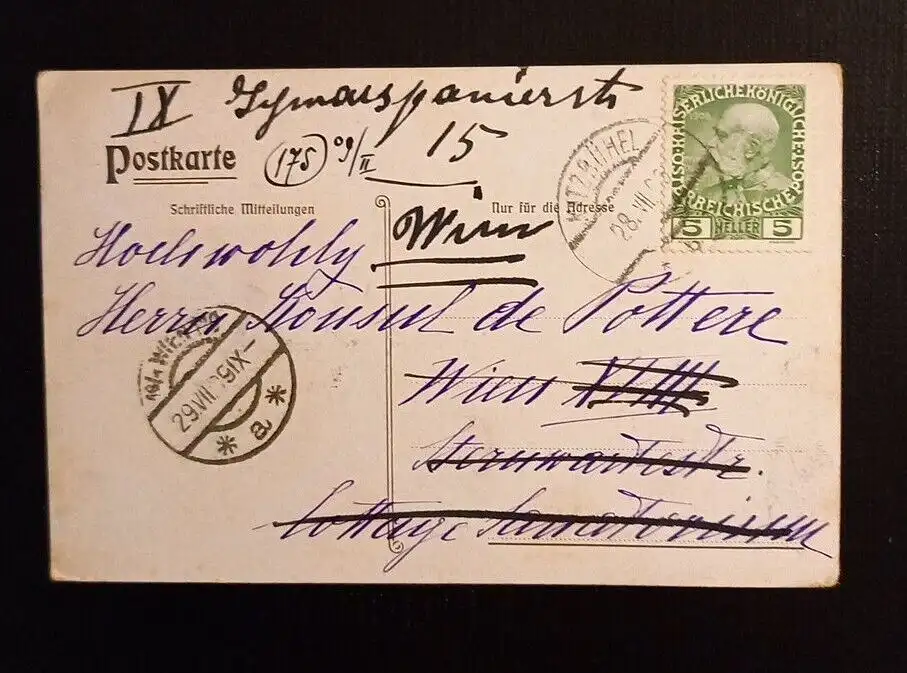 IX
15
Postkarte
175 09/II
Schriftliche Mitteilungen
Nur für die Adresse
Wien
Herrn Konsul de Pottere
Wien XVIII
Sternwartestr.
Cottage Sanatorium
KITZBÜHEL
28.VII.
KAISERLICHEKÖNIGLICHE
ÖSTERREICHISCHE POST
1908
5 HELLER 5
WIEN
29.VII. 9 IX-
* a *